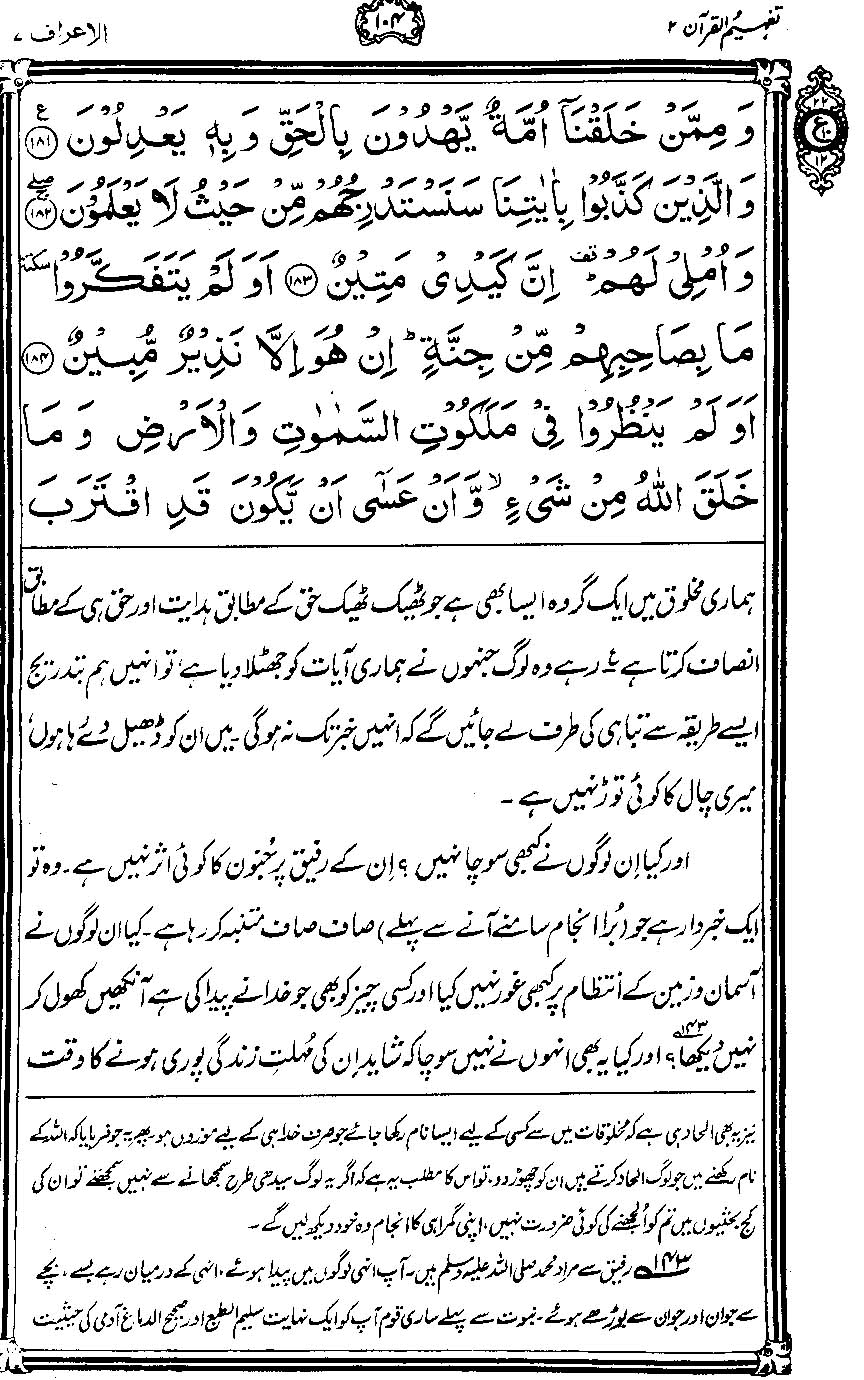 تفہیم القرآن ۲
۱۰۴
الاعراف ۷
۲۲
ع
۱۰
۱۲
وَ مِمَّنْ خَلَقْنَاۤ اُمَّةٌ یَّهْدُوْنَ بِالْحَقِّ وَ بِهٖ یَعْدِلُوْنَ ﴿۱۸۱﴾ ع
وَالَّذِیْنَ كَذَّبُوْا بِاٰیٰتِنَا سَنَسْتَدْرِجُهُمْ مِّنْ حَیْثُ لَا یَعْلَمُوْنَ ﴿۱۸۲﴾
وَ اُمْلِیْ لَهُمْ ؕ اِنَّ كَیْدِیْ مَتِیْنٌ ﴿۱۸۳﴾ اَوَلَمْ یَتَفَكَّرُوْا سکتة
مَا بِصَاحِبِهِمْ مِّنْ جِنَّةٍ ؕ اِنْ هُوَ اِلَّا نَذِیْرٌ مُّبِیْنٌ ﴿۱۸۴﴾
اَوَلَمْ یَنْظُرُوْا فِیْ مَلَكُوْتِ السَّمٰوٰتِ وَالْاَرْضِ وَ مَا
خَلَقَ اللّٰهُ مِنْ شَیْءٍ ۙ وَّاَنْ عَسٰۤى اَنْ یَّكُوْنَ قَدِ اقْتَرَبَ
ہماری مخلوق میں ایک گروہ ایسا بھی ہے جو ٹھیک ٹھیک حق کے مطابق ہدایت اور حق ہی کے مطابق
انصاف کرتا ہے ع رہے وہ لوگ جنہوں نے ہماری آیات کو جھٹلا دیا ہے، تو انہیں ہم بتدریج
ایسے طریقہ سے تباہی کی طرف لے جائیں گے کہ انہیں خبر تک نہ ہوگی۔ میں ان کو ڈھیل دے رہا ہوں،
میری چال کا کوئی توڑ نہیں ہے۔
اور کیا اِن لوگوں نے کبھی سوچا نہیں؟ اِن کے رفیق پر جُنون کا کوئی اثر نہیں ہے۔ وہ تو
ایک خبردار ہے جو (بُرا انجام سامنے آنے سے پہلے) صاف صاف متنبہ کر رہا ہے۔ کیا ان لوگوں نے
آسمان و زمین کے انتظام پر کبھی غور نہیں کیا اور کسی چیز کو بھی جو خدا نے پیدا کی ہے آنکھیں کھول کر
نہیں دیکھا۱۴۳؟ اور کیا یہ بھی انہوں نے نہیں سوچا کہ شاید اِن کی مُہلتِ زندگی پوری ہونے کا وقت
نیز یہ بھی الحاد ہی ہے کہ مخلوقات میں سے کسی کے لیے ایسا نام رکھا جائے جو صرف خدا ہی کے لیے موزوں ہو۔ پھر یہ جو فرمایا کہ اللہ کے
نام رکھنے میں جو لوگ الحاد کرتے ہیں ان کو چھوڑ دو، تو اس کا مطلب یہ ہے کہ اگر یہ لوگ سیدھی طرح سمجھانے سے نہیں سمجھتے تو ان کی
کج بحثیوں میں تم کو اُلجھنے کی کوئی ضرورت نہیں، اپنی گمراہی کا انجام وہ خود دیکھ لیں گے۔
۱۴۳ رفیق سے مراد محمد صلی اللہ علیہ وسلم ہیں۔ آپ انہی لوگوں میں پیدا ہوئے، انہی کے درمیان رہے بسے، بچے
سے جوان اور جوان سے بوڑھے ہوئے۔ نبوت سے پہلے ساری قوم آپ کو ایک نہایت سلیم الطبع اور صحیح الدماغ آدمی کی حیثیت